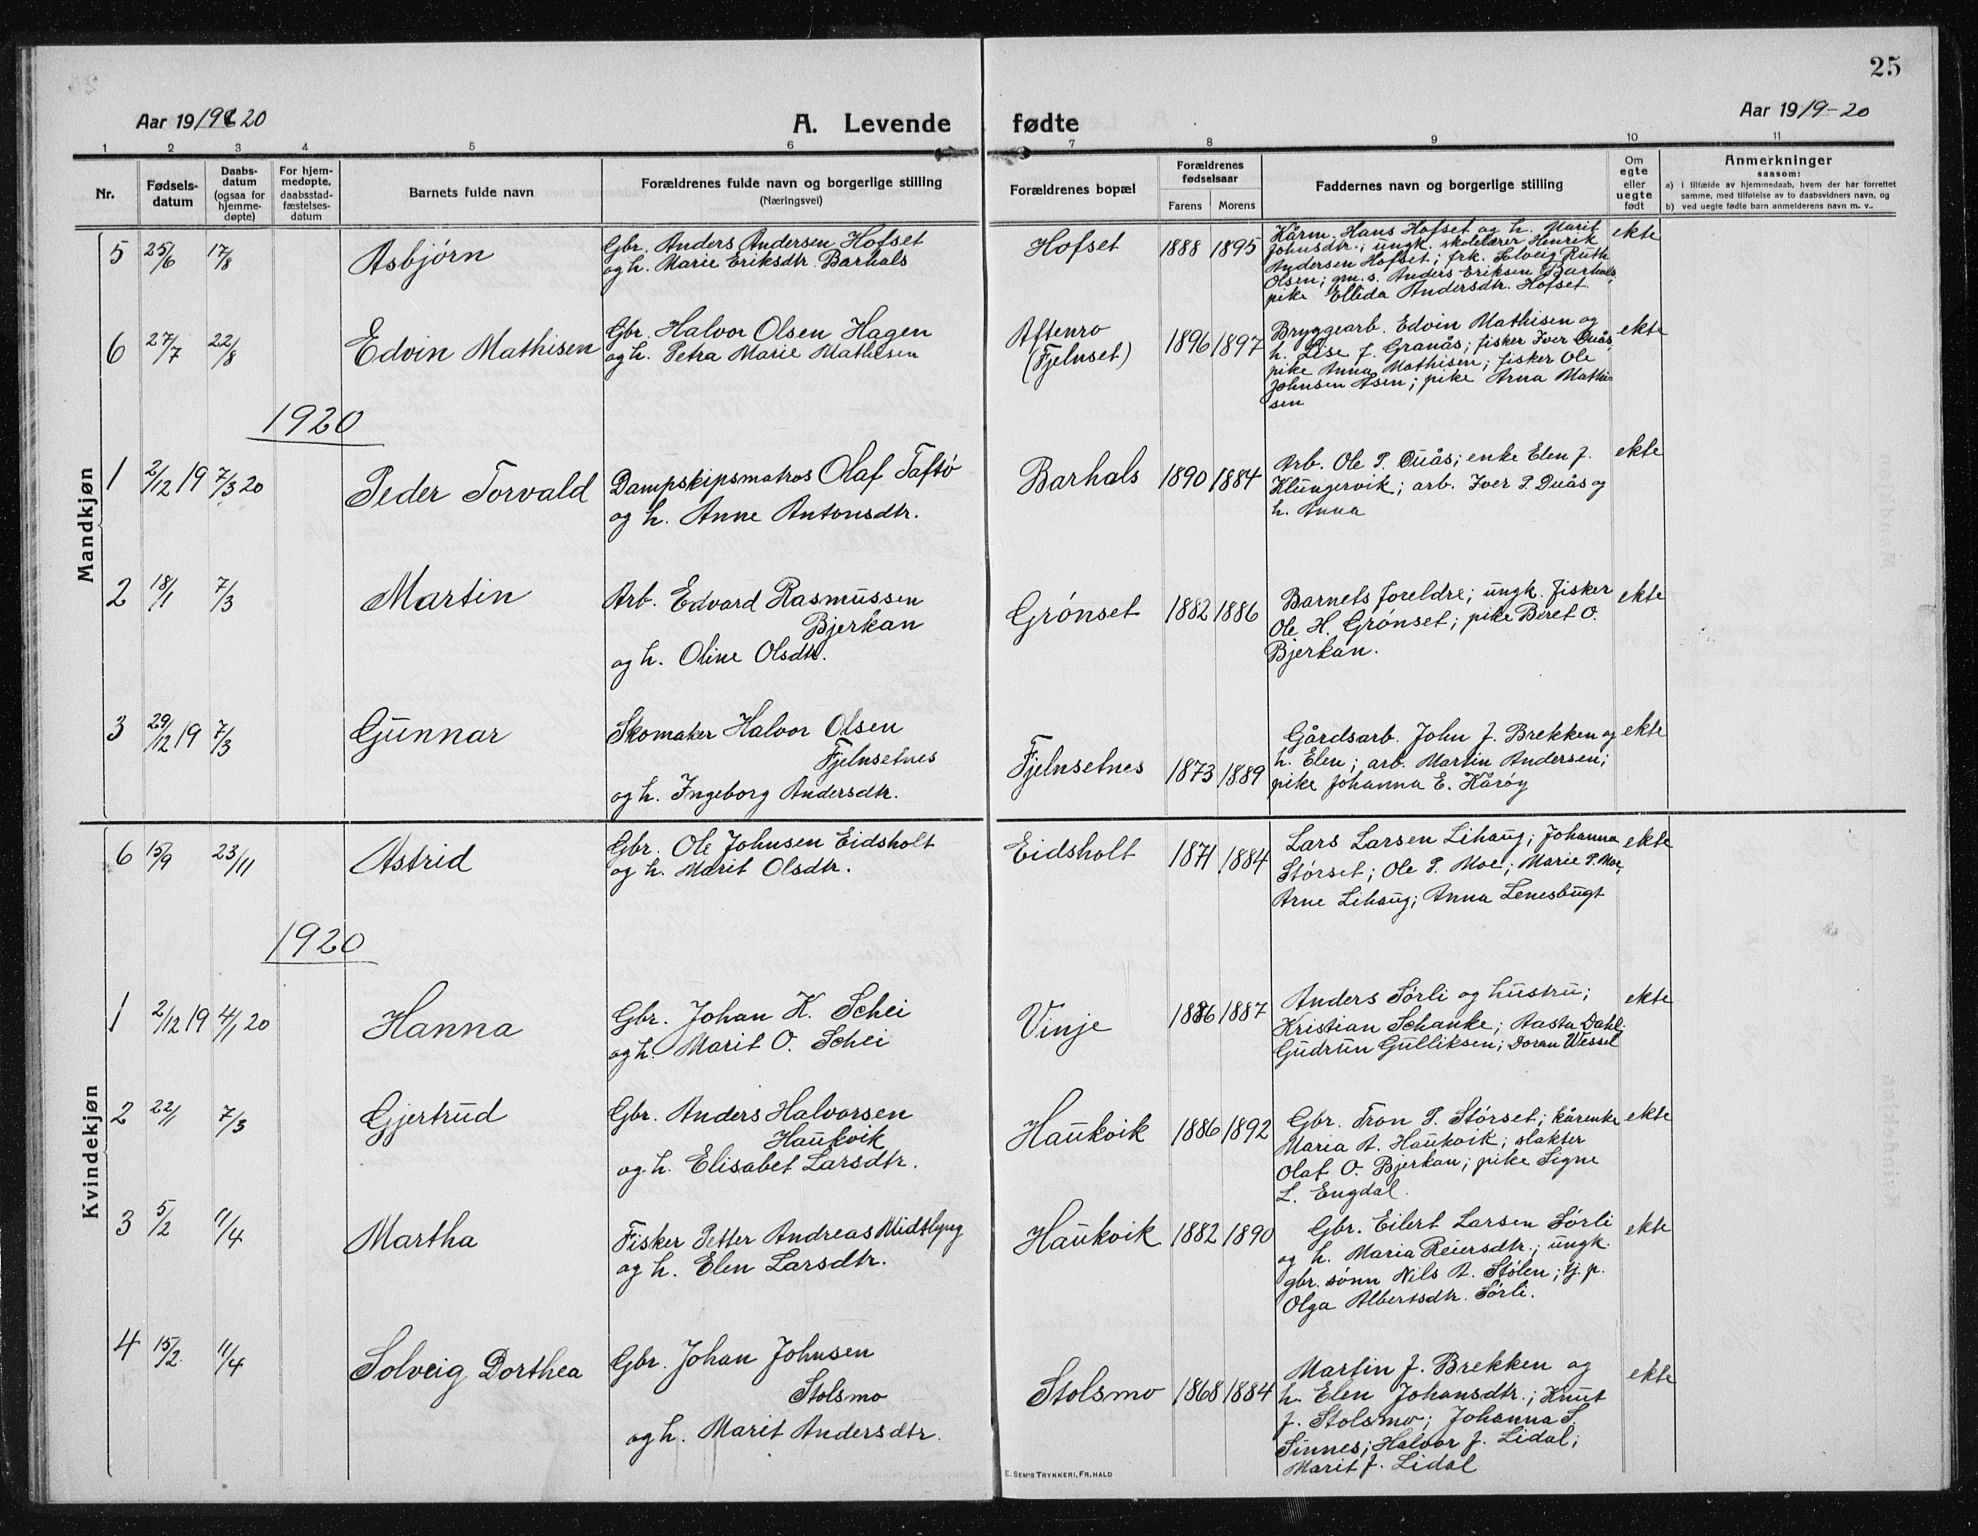 25
Aar 1919 & 20
A. Levende fødte
Aar 1919-20
1 2 3 4 5 6 7 8 9 10 11
Nr.
Fødsels-
datum
Daabs-
datum
(ogsaa for
hjemme-
døpte)
For hjem-
medøpte,
daabsstad-
fæstelses-
datum
Barnets fulde navn
Forældrenes fulde navn og borgerlige stilling
(Næringsvei)
Forældrenes bopæl
Forældrenes
fødselsaar
Farens Morens
Faddernes navn og borgerlige stilling
Om
egte
eller
uegte
født
Anmerkninger
saasom:
a) I tilfælde av hjemmedaab, hvem der har forrettet
samme, med tilføielse av to daabsvidners navn, og
b) ved uegte fødte barn anmelderens navn m. v..
Mandkjøn
5 25/6 17/8 Asbjørn
Gbr. Anders Andersen Hofset
og h. Marie Eriksdtr. Barhals
Hofset 1888 1895
Kårm. Hans Hofset og h. Marit
Johnsdtr.; ungk. skolelærer Henrik
Andersen Hofset; frk. Solveig Ruth
Olsen; grn. s. Anders Eriksen Barhals,
pike Ellida Andersdtr. Hofset.
ekte
6 27/7 22/8 Edvin Mathisen
Gbr. Halvor Olsen Hagen
og h. Petra Marie Mathisen
Aftenro
(Fjelnset)
1896 1897
Bryggearb. Edvin Mathisen og
h. Lise f. Granås; fisker Iver Duås,
pike Anna Mathisen; fisker Ole
Johnsen Åsen; pike Arna Mathi-
sen
ekte
1920
1 2/12 19 7/3 20 Peder Torvald
Dampskipsmatros Olaf Taftø
og h. Anne Antonsdtr.
Barhals 1890 1884
Arb. Ole P. Duås; enke Elen J.
Klungervik; arb. Iver P. Duås og
h. Anna
ekte
2 18/1 7/3 Martin
Arb. Edvard Rasmussen
Bjerkan
og h. Oline Olsdtr.
Grønset 1882 1886
Barnets foreldre; ungk. fisker
Ole H. Grønset; pike Beret O.
Bjerkan.
ekte
3 29/12 19 7/3 Gunnar
Skomaker Halvor Olsen
Fjelnsetnes
og h. Ingeborg Andersdtr.
Fjelnsetnes 1873 1889
Gårdsarb. John J. Brekken og
h. Elen; arb. Martin Andersen;
pike Johanna E. Kårøy
ekte
Kvindekjøn
6 15/9 23/11 Astrid
Gbr. Ole Johnsen Eidsholt
og h. Marit Olsdtr.
Eidsholt 1871 1884
Lars Larsen Lihaug; Johanna
Størset; Ole P. Moe; Marie P. Moe,
Arne Lihaug; Anna Lenesbugt
ekte
1920
1 2/12 19 4/1 20 Hanna
Gbr. Johan K. Schei
og h. Marit O. Schei
Vinje 1886 1887
Anders Sørli og hustru;
Kristian Schanke; Aasta Dahl.
Gudrun Gulliksen; Doran Wessel
ekte
2 22/1 7/3 Gjertrud
Gbr. Anders Halvorsen
Haukvik
og h. Elisabet Larsdtr.
Haukvik 1886 1892
Gbr. Tron P. Størset; kårenke
Maria A. Haukvik; slakter
Olaf O. Bjerkan; pike Signe
L. Engdal.
ekte
3 5/2 11/4 Martha
Fisker Petter Andreas Midtlyng
og h. Elen Larsdtr.
Haukvik 1882 1890
Gbr. Eilert Larsen Sørli
og h. Maria Reiersdtr.; ungk.
gbr. sønn Nils A. Stølen; tj. p.
Olga Albertsdtr. Sørli.
ekte
4 15/2 11/4 Solveig Dorthea
Gbr. Johan Johnsen
Stolsmo
og h. Marit Andersdtr.
Stolsmo 1868 1884
Martin J. Brekken og
h. Elen Johansdtr.; Knut
J. Stolsmo; Johanna S.
Sinnes; Halvor J. Lidal;
Marit J. Lidal
ekte
E. SEM'S TRYKKERI, FR. HALD